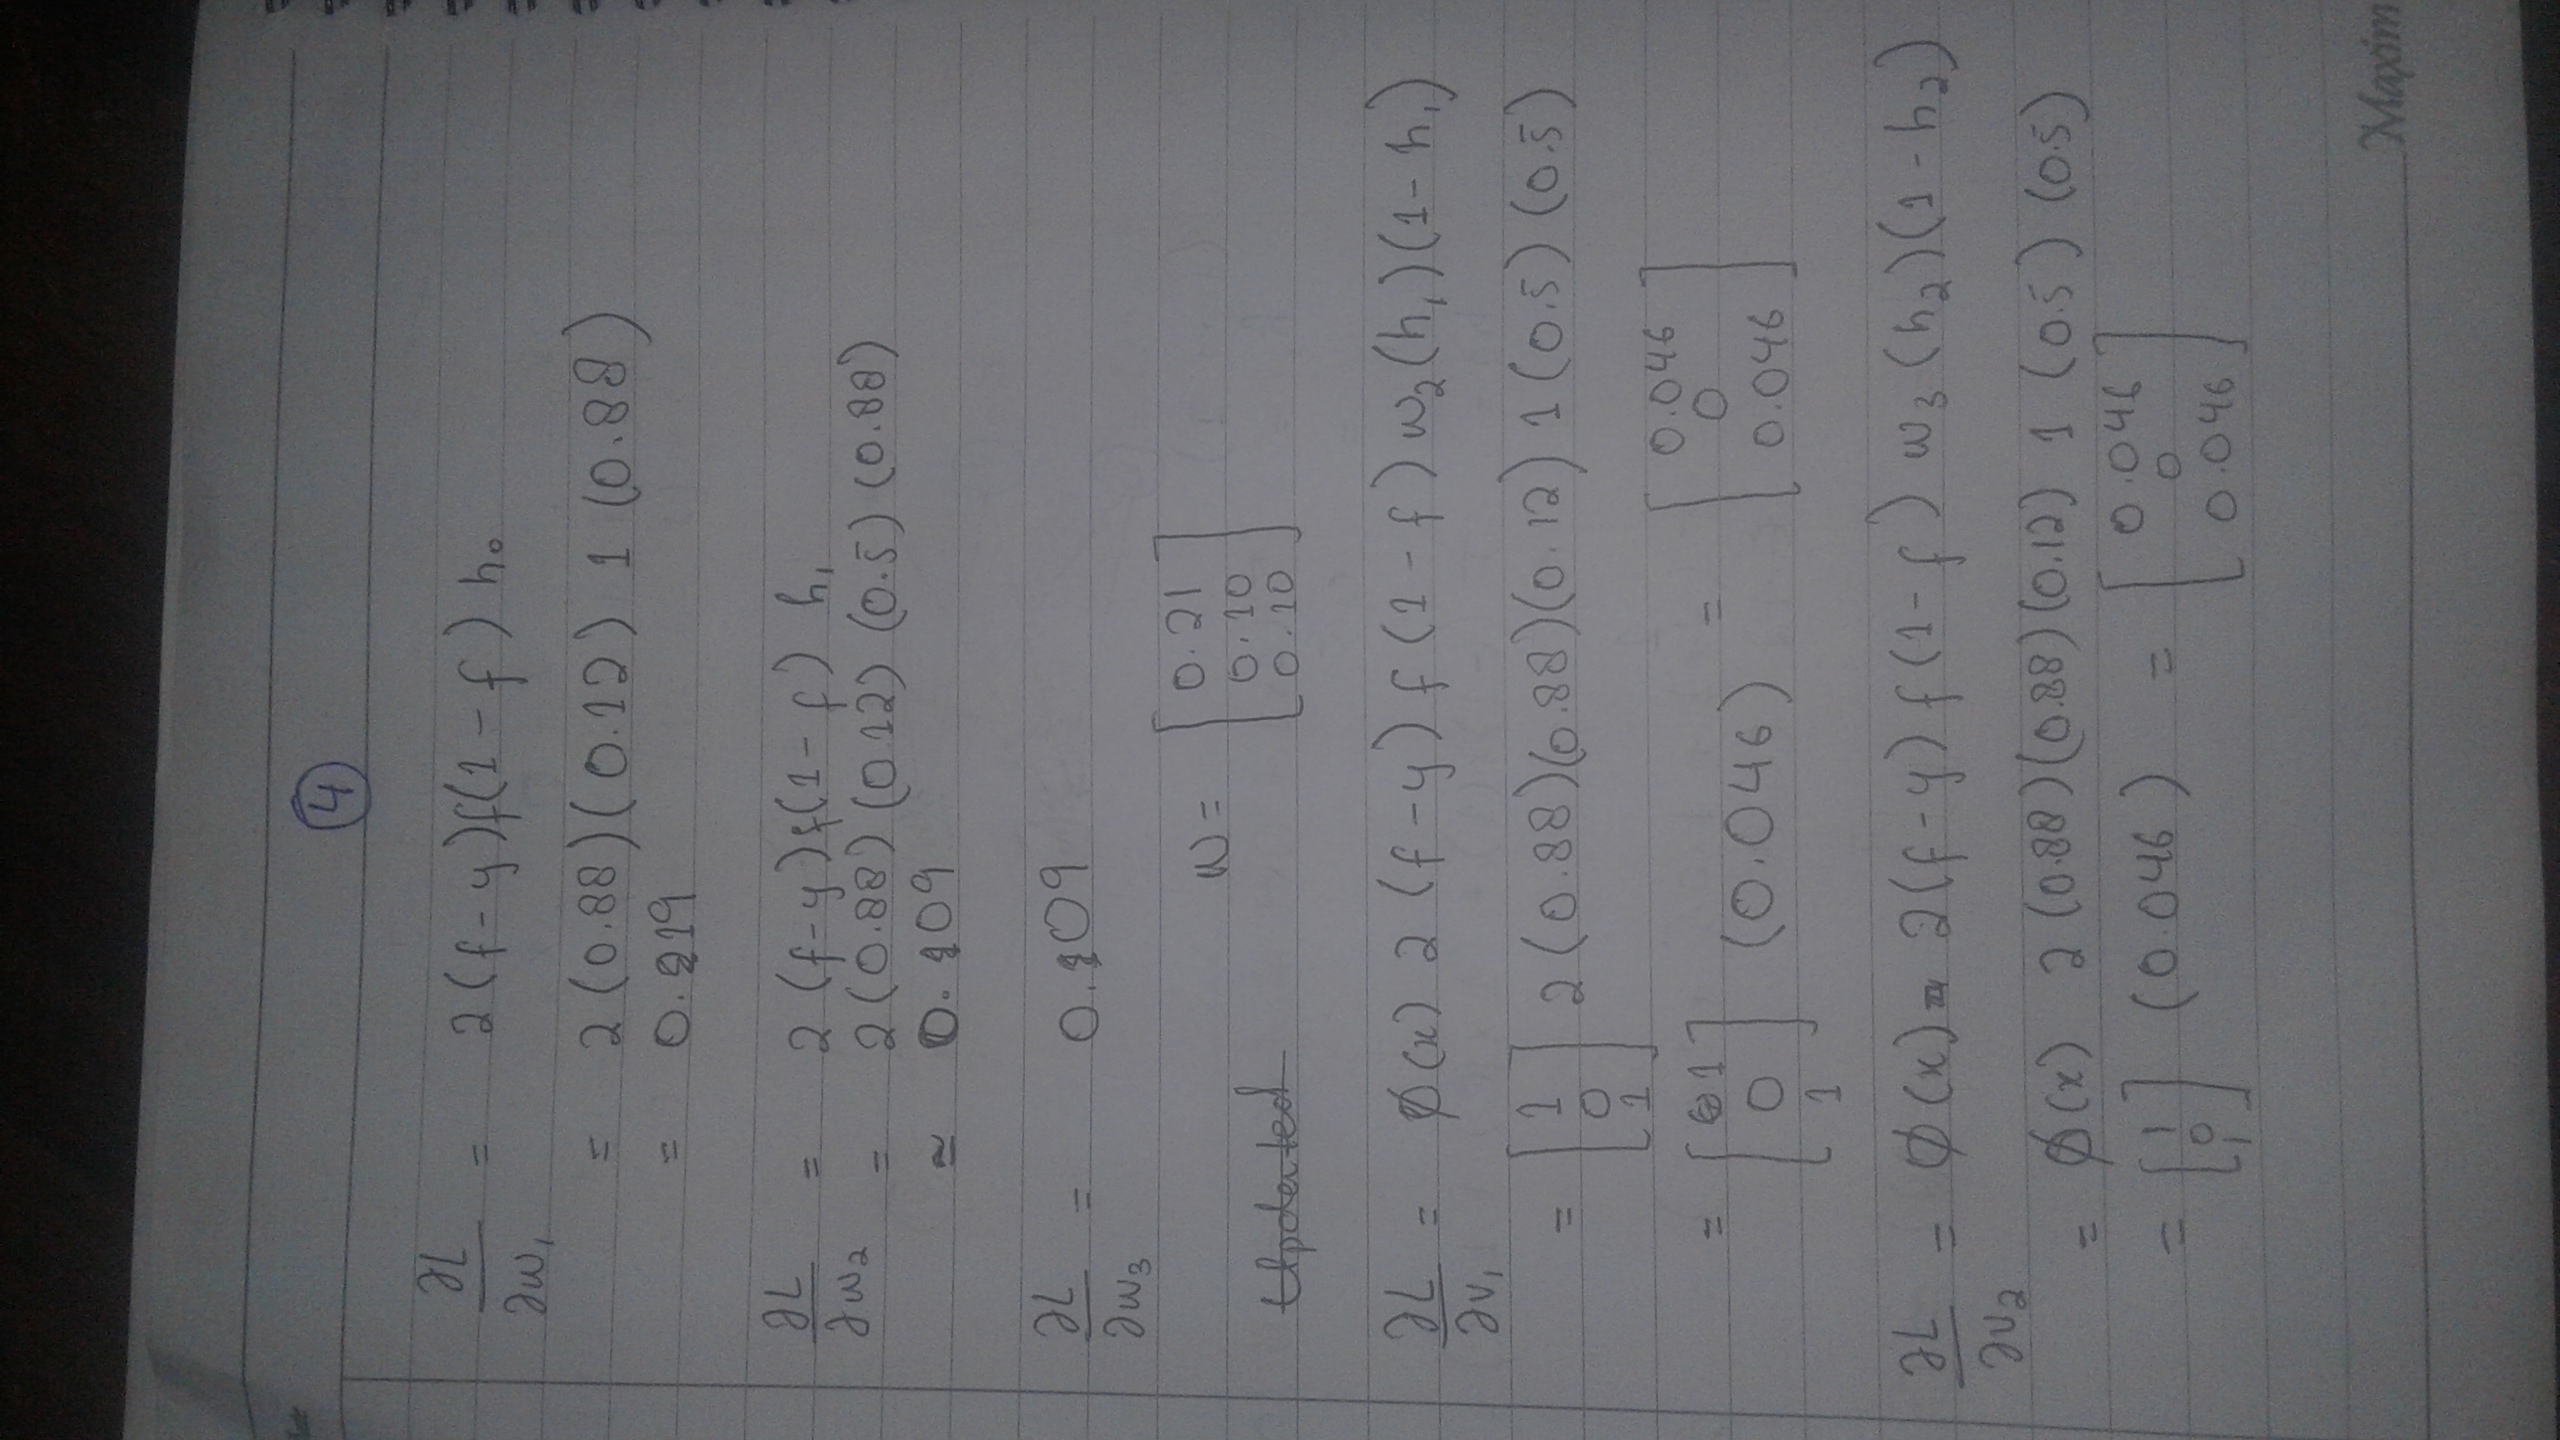 4
∂L/∂w₁ = 2(f-y)f(1-f) h₀
= 2(0.88)(0.12) 1 (0.88)
= 0.219
∂L/∂w₂ = 2(f-y)f(1-f) h₁
= 2(0.88)(0.12)(0.5)(0.88)
≃ 0.109
∂L/∂w₃ = 0.109
w = [0.21
0.10
0.10]
Updated
∂L/∂v₁ = ϕ(x) 2(f-y) f(1-f) w₂(h₁)(1-h₁)
= [1 0 1] 2(0.88)(0.88)(0.12) 1(0.5)(0.5)
= [1 0 1] (0.046) = [0.046 0 0.046]
∂L/∂v₂ = ϕ(x) 2(f-y) f(1-f) w₃(h₂)(1-h₂)
= ϕ(x) 2(0.88)(0.88)(0.12) 1 (0.5)(0.5)
= [1 0 1] (0.046) = [0.046 0 0.046]
Maxim